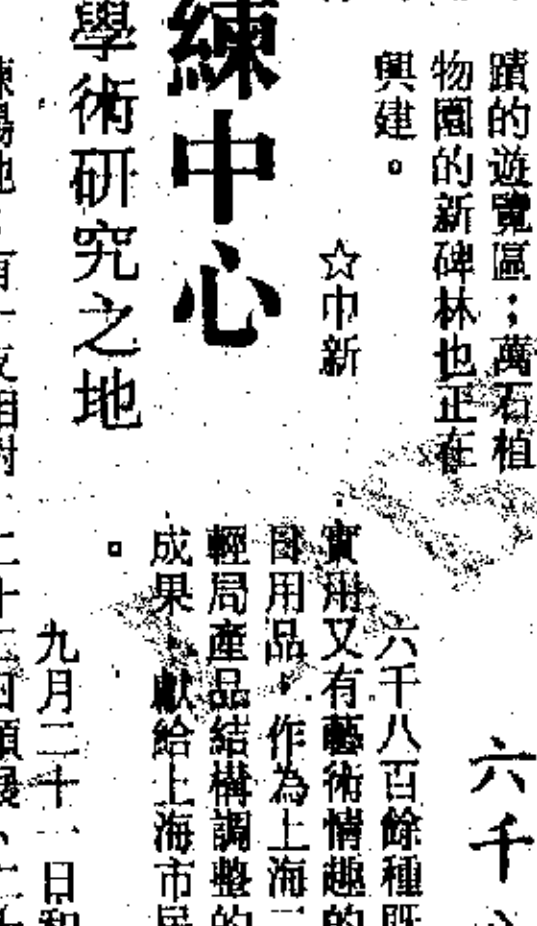 蹟的遊覽區；萬石植
物園的新碑林也正在
興建。
☆中新
練中心
學術研究之地
六千
六千八百餘種既
實用又有藝術情趣的
日用品，作為上海二
輕局產品結構調整的
成果，獻給上海市民
。
九月二十一日和